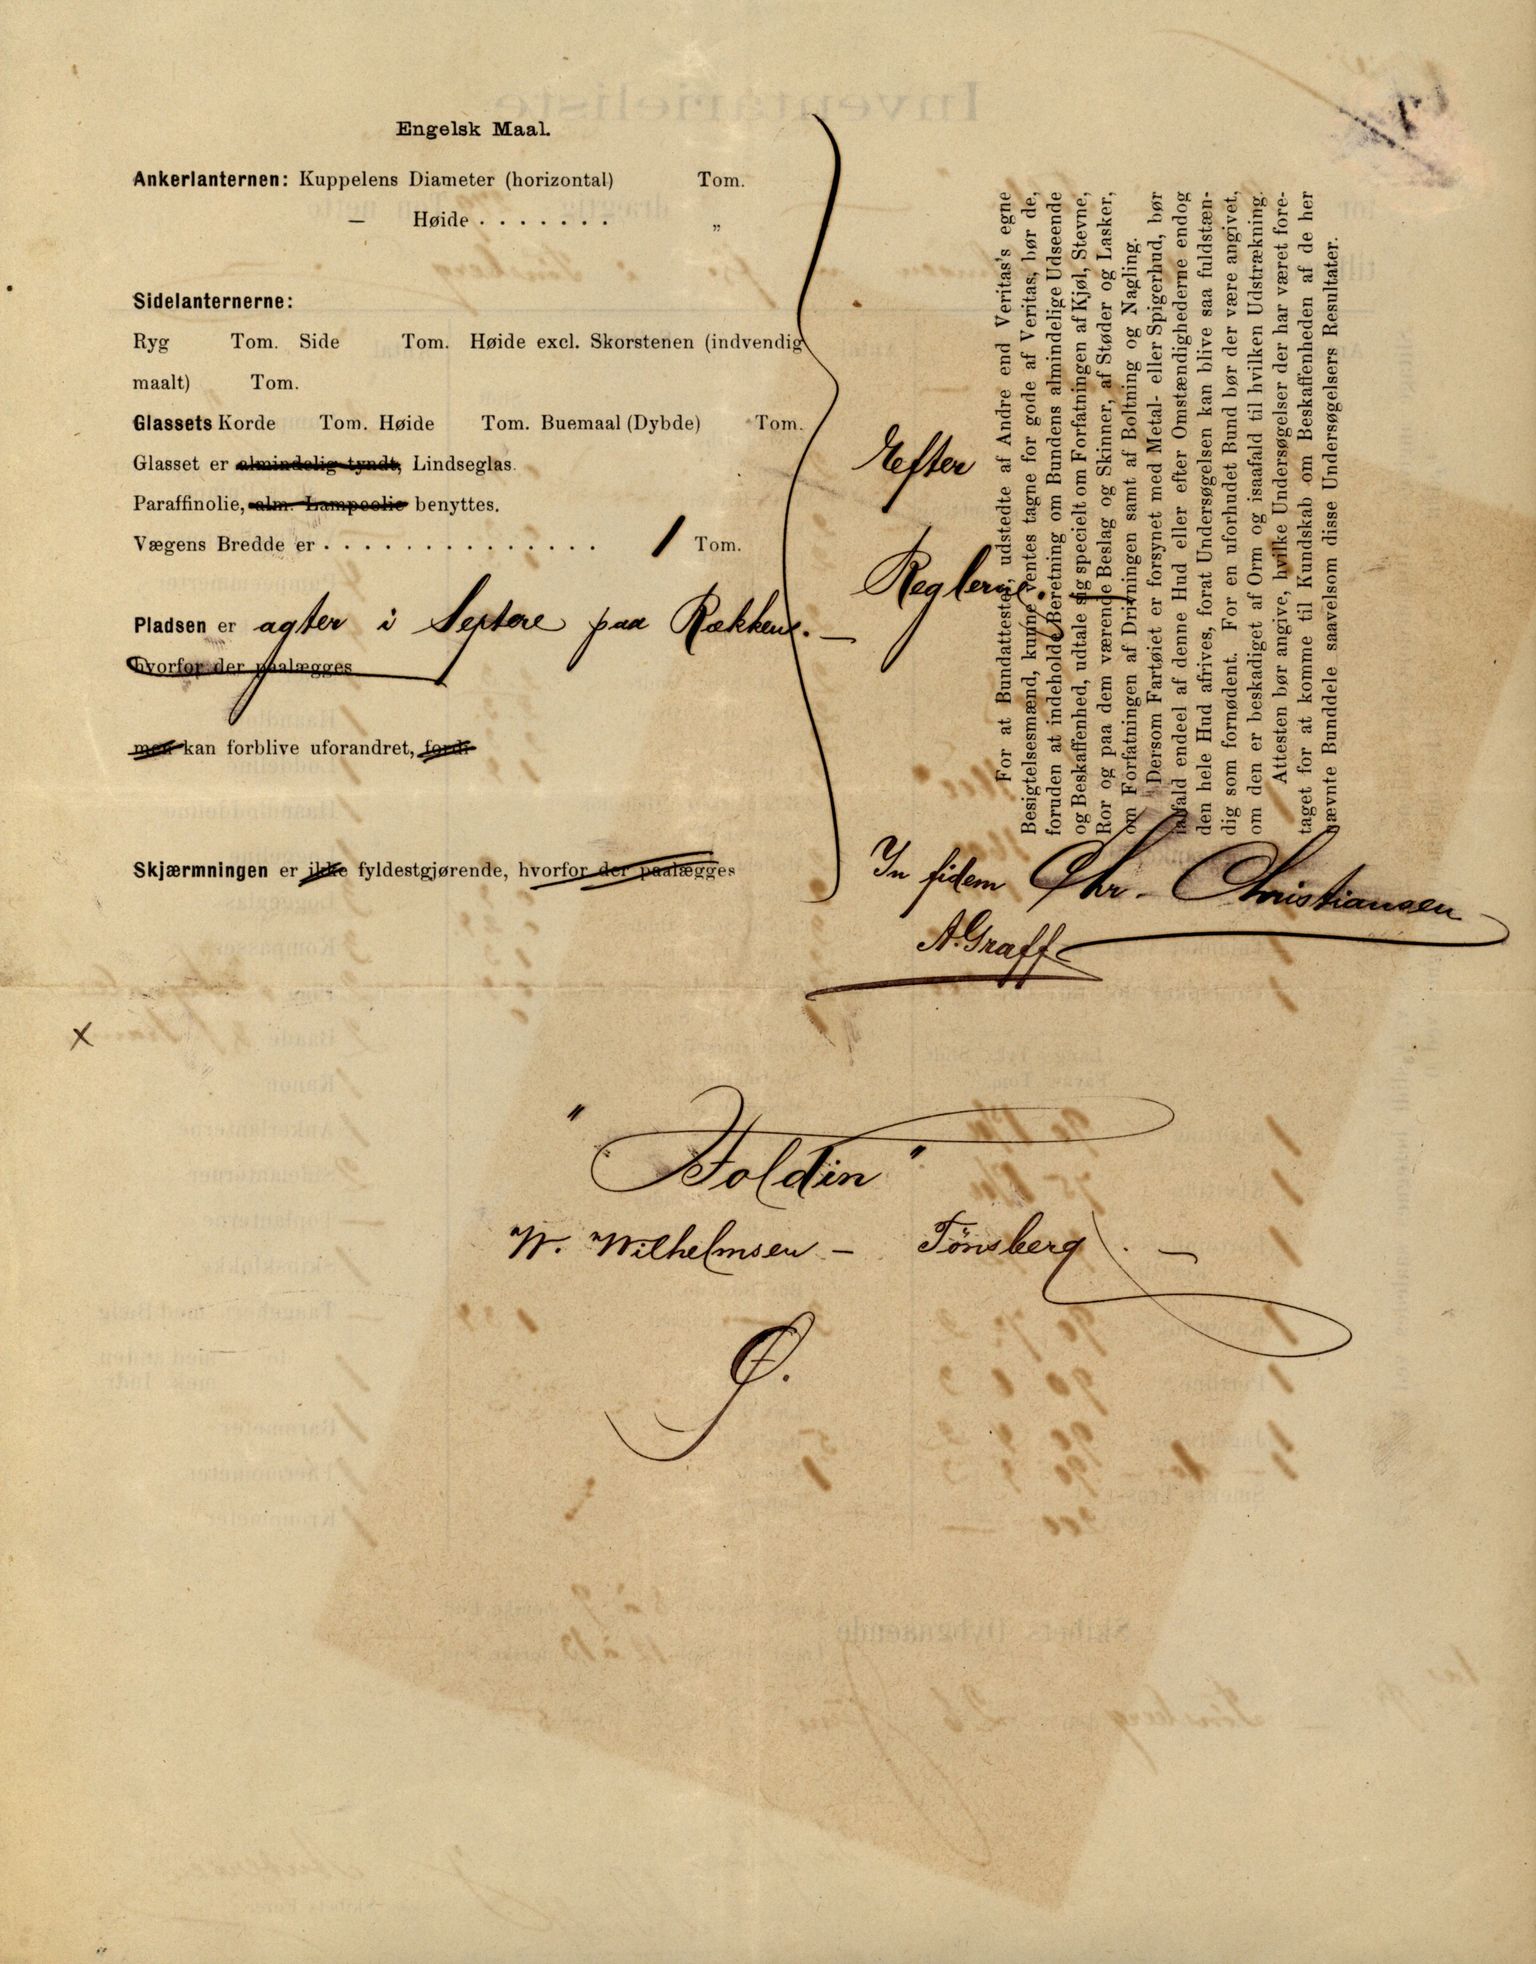 Engelsk Maal.
Ankerlanternen: Kuppelens Diameter (horizontal) Tom.
— Høide . . . . . . . „
Sidelanternerne:
Ryg Tom. Side Tom. Høide excl. Skorstenen (indvendig
maalt) Tom.
Glassets Korde Tom. Høide Tom. Buemaal (Dybde) Tom.
Glasset er almindelig tyndt, Lindseglas.
Paraffinolie, alm. Lampeolie benyttes.
Vægens Bredde er . . . . . . . . . . . . . . 1 Tom.
Pladsen er agter i Septere paa Rækkene. —
hvorfor der paalægges
men kan forblive uforandret, fordi
Skjærmningen er ikke fyldestgjørende, hvorfor der paalægges
Efter
Reglerne. —
For at Bundattester, udstedte af Andre end Veritas's egne
Besigtelsesmænd, kunne ventes tagne for gode af Veritas, bør de,
foruden at indeholde Beretning om Bundens almindelige Udseende
og Beskaffenhed, udtale sig specielt om Forfatningen af Kjøl, Stevne,
Ror og paa dem værende Beslag og Skinner, af Støder og Lasker,
om Forfatningen af Drivningen samt af Boltning og Nagling.
Dersom Fartøiet er forsynet med Metal- eller Spigerhud, bør
ialfald endeel af denne Hud eller efter Omstændighederne endog
den hele Hud afrives, forat Undersøgelsen kan blive saa fuldstæn-
dig som fornødent. For en uforhudet Bund bør der være angivet,
om den er beskadiget af Orm og isaafald til hvilken Udstrækning.
Attesten bør angive, hvilke Undersøgelser der har været fore-
taget for at komme til Kundskab om Beskaffenheden af de her
nævnte Bunddele saavelsom disse Undersøgelsers Resultater.
In fidem Chr. Christiansen
A. Graff
x
"Foldin"
W. Wilhelmsen — Tönsberg. —